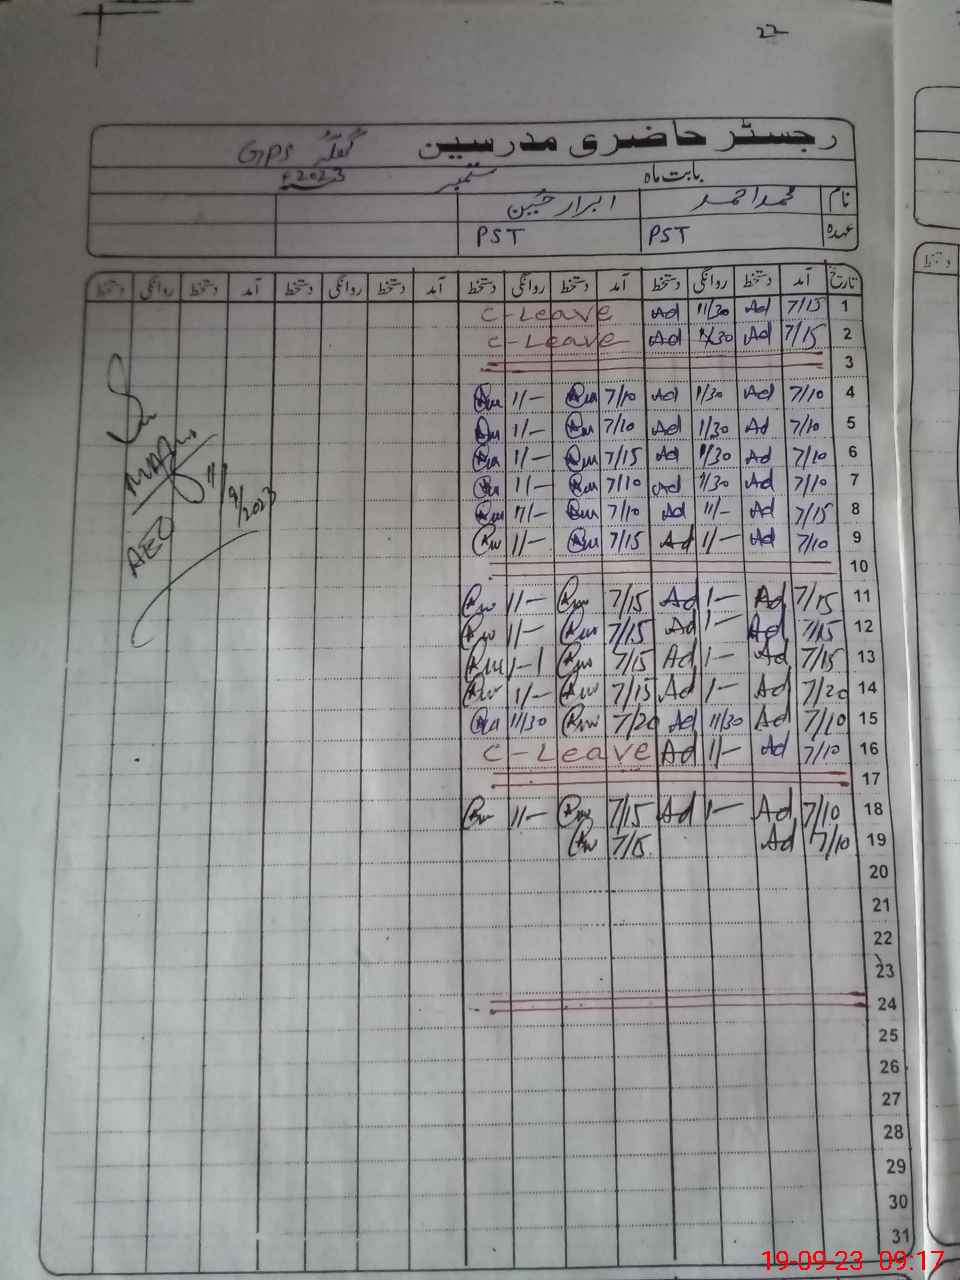 22
رجسٹر حاضری مدرسین GPS
بابت ماہ ستمبر 2023ء
نام محمد احمد ابرار حسین
عہدہ PST PST
تاریخ آمد دستخط روانگی دستخط آمد دستخط روانگی دستخط آمد دستخط روانگی دستخط آمد دستخط روانگی دستخط
1 7/15 Ad 11/30 Ad C-Leave
2 7/15 Ad Ad C-Leave
3
4 7/10 Ad 1/30 Ad 7/10 1/-
5 7/10 Ad 1/30 Ad 7/10 1/-
6 7/10 Ad 1/30 Ad 7/15 1/-
7 7/10 Ad 1/30 Ad 7/10 1/-
8 7/15 Ad 11/- Ad 7/10
9 7/10 Ad 1/- Ad 7/15 1/-
10
11 7/15 Ad 1- Ad 7/15 1/-
12 7/15 Ad 1- Ad 7/15 1/-
13 7/15 Ad 1- Ad 7/15
14 7/20 Ad 1- Ad 7/15 1/-
15 7/10 Ad 11/30 Ad 7/20 11/30
16 7/10 Ad 1/- Ad C-Leave
17
18 7/10 Ad 1- Ad 7/15 1/-
19 7/10 Ad 7/15
20
21
22
23
24
25
26
27
28
29
30
31
11/9/2023
AEO
19-09-23 09:17